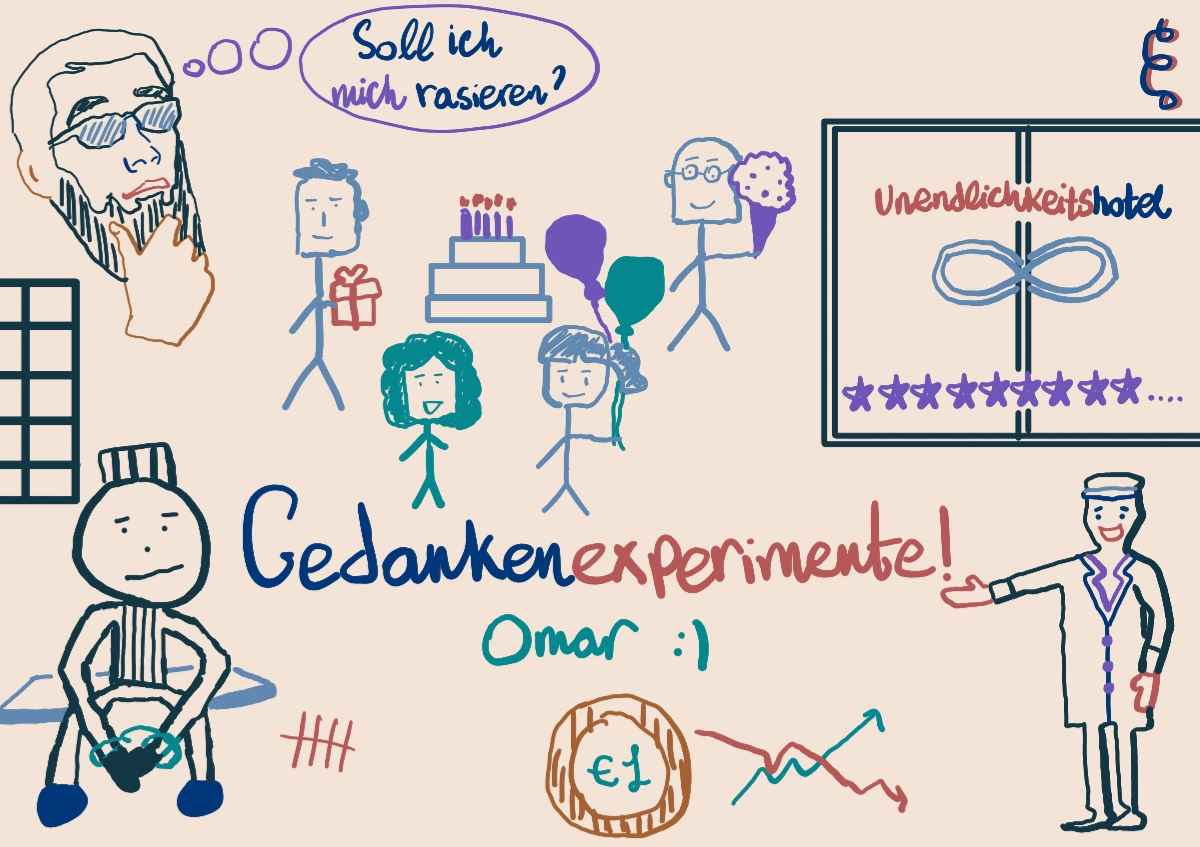 Soll ich
mich rasieren?
ξ
Unendlichkeitshotel
Gedankenexperimente!
Omar :)
€1